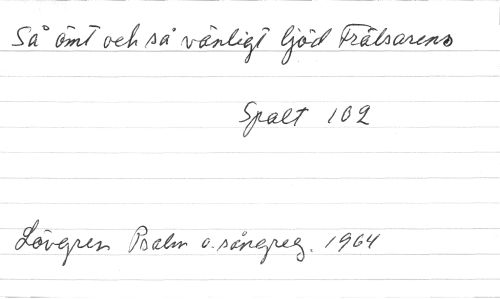 Så ömt och så vänligt ljöd Frälsarens
Spalt 102
Lövgren Psalm o. sångreg. 1964